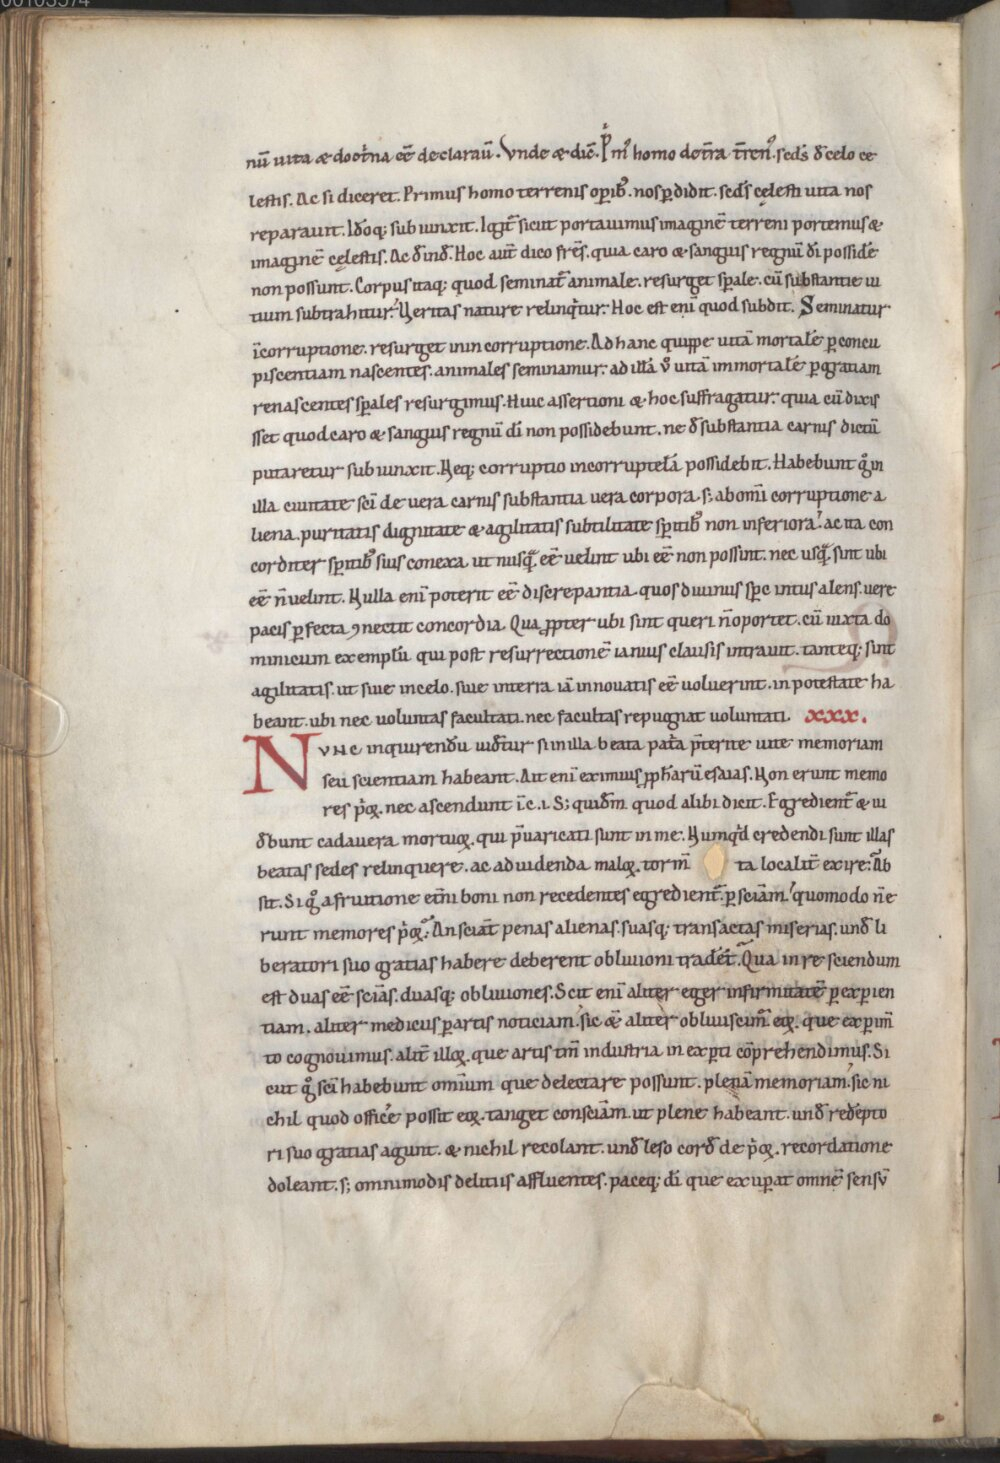 nū uita & doct̄na eē declarau̅. Vnde & dic̄. P̅mꝰ homo de t̄ra t̄renꝰ. sc̄ds d̄ celo ce
lestis. Ac si diceret. Primus homo terrenis oꝑibꝫ. nos ꝑdidit. sc̄ds cęlesti uita nos
reparauit. Idōq; subiunxit. Igit̄ sicut portauimus imaginē terreni portemus &
imaginē cęlestis. Ac d̄ind̄. Hoc aut̄ dico fr̄es. quia caro & sanguis regnū dī possidē
non possunt. Corpus itaq; quod seminat̄ animale. resurget sp̄ale. cū substantie ui
tium subtrahitur. Ueritas nature relinq̄tur. Hoc est eni̅ quod subdit. Seminatur
ī corruptione. resurget in incorruptione. Ad hanc quippe uitā mortalē ꝑ concu
piscentiam nascentes. animales seminamur. ad illā u̅ uitā immortalē ꝑ gratiam
renascentes sp̄ales resurgimus. Huic assertioni & hoc suffragatur. quia cū dixis
sset quod caro & sanguis regnū dī non possidebunt. ne d̄ substantia carnis dictū
putaretur subiunxit. Neq; corruptio incorruptelā possidebit. Habebunt g̊ in
illa ciuitate sc̄i de uera carnis substantia uera corpora. s; ab omī corruptione a
liena. puritatis dignitate & agilitatis subtilitate sp̄itibꝫ non inferiora. ac ita con
corditer sp̄itibꝫ suis conexa. ut nusq̄ eē uelint ubi eē non possint. nec usq̄ sint ubi
eē n̄ uelint. Nulla eni̅ poterit eē discrepantia. quos diuinus sp̄c intus alens. uere
pacis ꝑfecta ꝯnectit concordia. Qua ꝓpter ubi sint queri n̄ oportet. cū iuxta do
minicum exemplū qui post resurrectionē ianuis clausis intrauit. tanteq; sint
agilitatis. ut siue in celo. siue in terra iā innouatis eē uoluerint. in potestate ha
beant. ubi nec uoluntas facultati. nec facultas repugnat uoluntati. xxx.
Nvnc inquirendū uid̄tur si in illa beata pat̄a p̄terite uite memoriam
seu scientiam habeant. Ait eni̅ eximius ꝓph̄arū esaias. Non erunt memo
res p̄oꝝ. nec ascendunt ī. c. i. S; quid̄m quod alibi dicit. Egredient̄ & ui
d̄bunt cadauera mortuoꝝ. qui p̄uaricati sunt in me. Numq̄d credendi sunt illas
beatas sedes relinquere. ac ad uidenda maloꝝ. torm̄ ta localit̄ exire. Ab
sit. Si g̊ a fruitione et̄ni boni non recedentes egredient̄. ꝑ sciām. quomodo n̄ e
runt memores p̄oꝝ. An sciāt penas alienas. suasq; transactas miserias. und̄ li
beratori suo gratias habere deberent obliuioni tradēt. Qua in re sciendum
est duas eē sciās. duasq; obliuiones. Scit eni̅ aliter eger infirmitatē ꝑ experien
tiam. aliter medicus ꝑ artis noticiam. sic & aliter obliuiscim̄ eoꝝ. que experim̄
to cognouimus. alit̄ illoꝝ. que artis tm̄ industria in experti cōprehendimus. Si
cut g̊ sc̄i habebunt omnium que delectare possunt. plenā memoriam. sic ni
chil quod officē possit eoꝝ. tanget consciām. ut plene habeant. und̄ red̄epto
ri suo gratias agunt. & nichil recolant. und̄ leso cord̄ de p̄oꝝ. recordatione
doleant. s; omnimodis delitiis affluentes. paceq; dī que exuꝑat omnē sensū